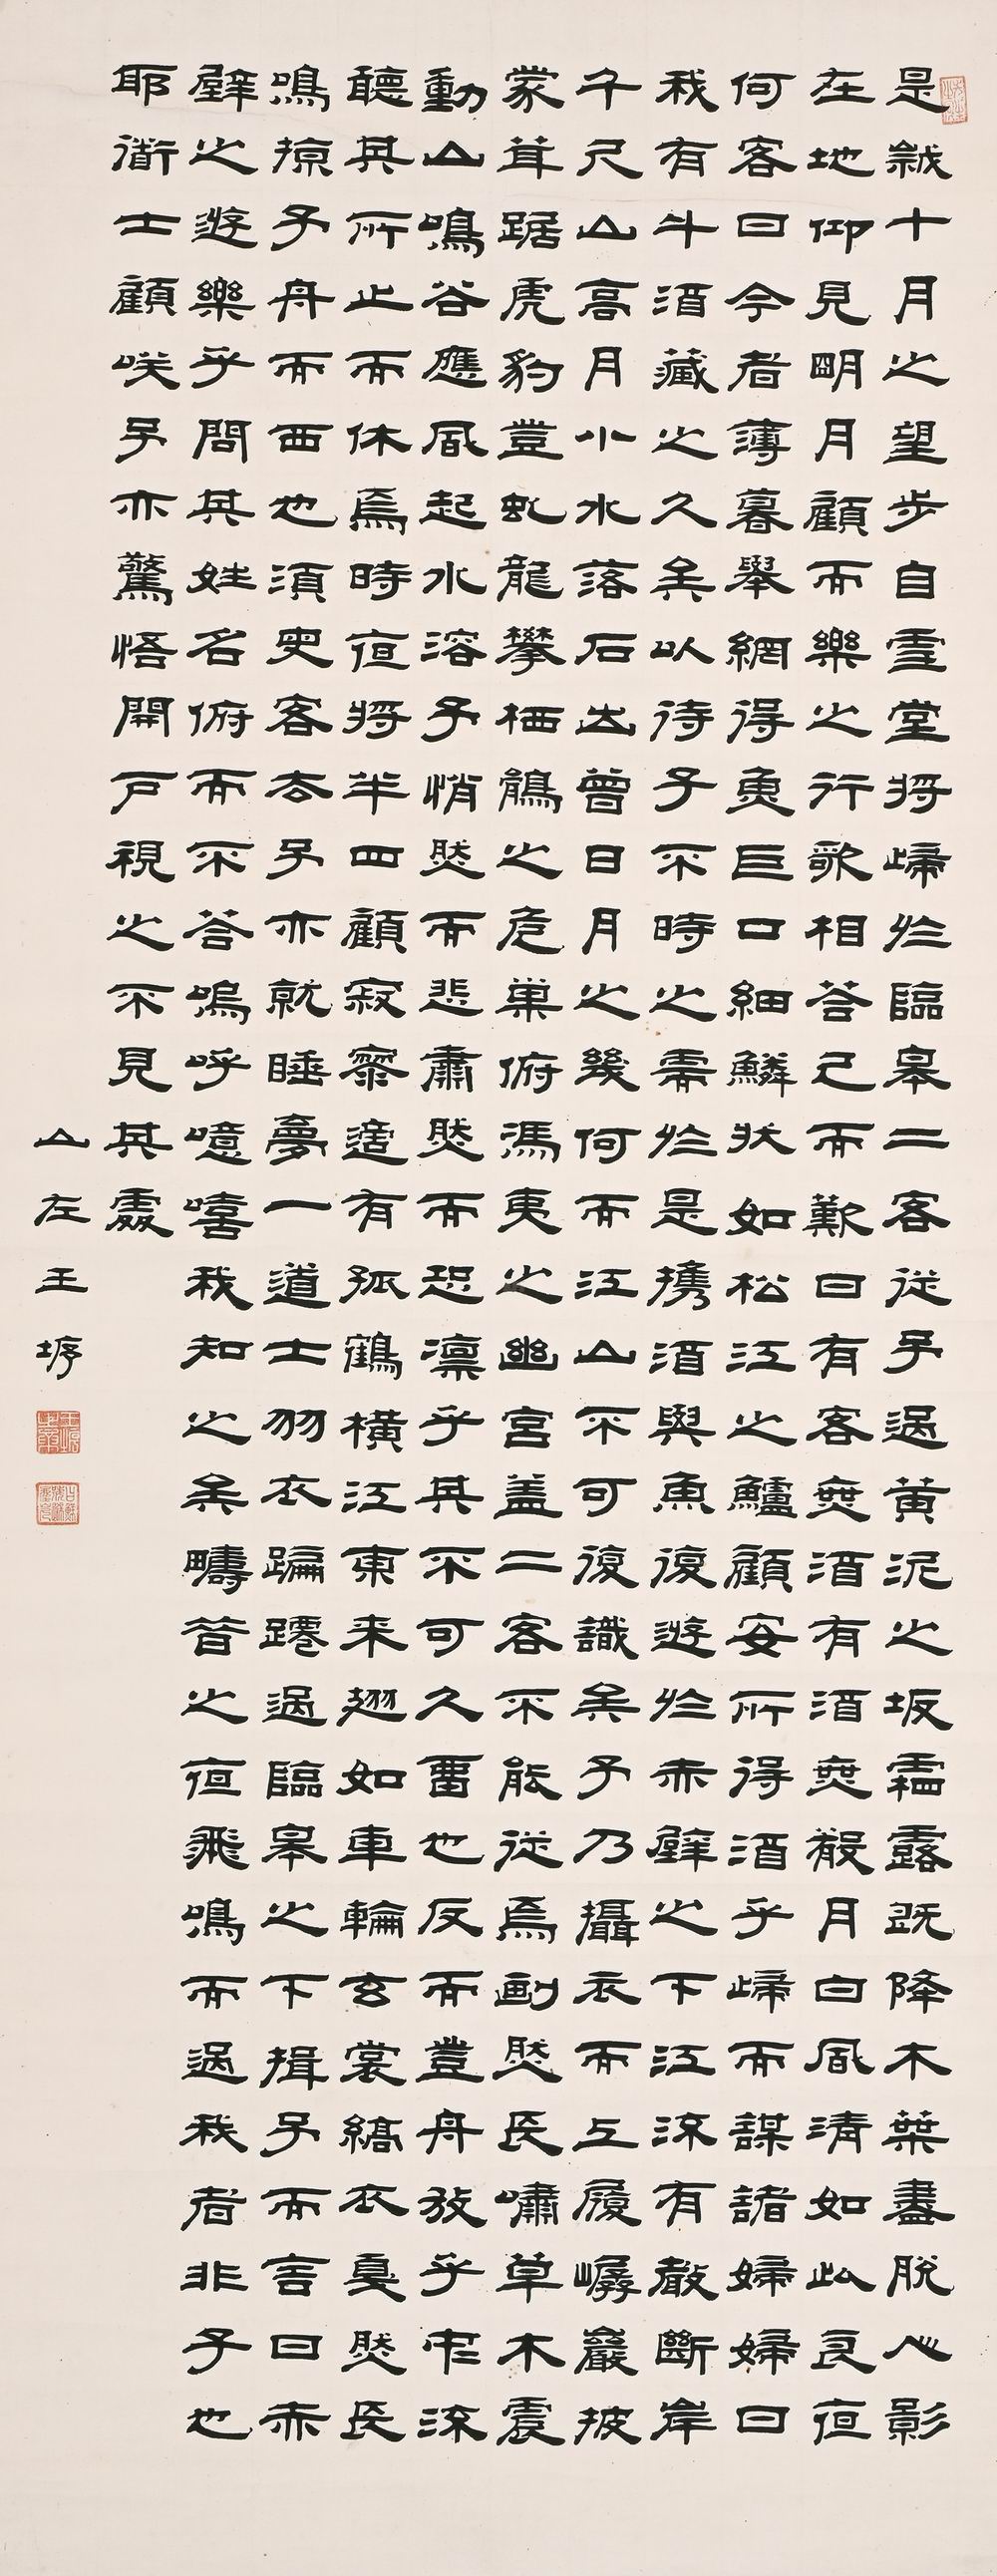 是歲十月之望步自雪堂將歸於臨皋二客從予過黃泥之坂霜露既降木葉盡脫人影
在地仰見明月顧而樂之行歌相答已而歎曰有客無酒有酒無殽月白風清如此良夜
何客曰今者薄暮舉網得魚巨口細鱗狀如松江之鱸顧安所得酒乎歸而謀諸婦婦曰
我有斗酒藏之久矣以待子不時之需於是攜酒與魚復遊於赤壁之下江流有聲斷岸
千尺山高月小水落石出曾日月之幾何而江山不可復識矣予乃攝衣而上履巉巖披
蒙茸踞虎豹登虬龍攀栖鶻之危巢俯馮夷之幽宮盖二客不能從焉劃然長嘯草木震
動山鳴谷應風起水溶予悄然而悲肅然而恐凜乎其不可久留也反而登舟放乎中流
聽其所止而休焉時夜將半四顧寂寥適有孤鶴橫江東來翅如車輪玄裳縞衣戛然長
鳴掠予舟而西也須臾客去予亦就睡夢一道士羽衣蹁躚過臨皋之下揖予而言曰赤
壁之遊樂乎問其姓名俯而不答嗚呼噫嘻我知之矣疇昔之夜飛鳴而過我者非子也
耶道士顧咲予亦驚悟開戶視之不見其處
山左王垿